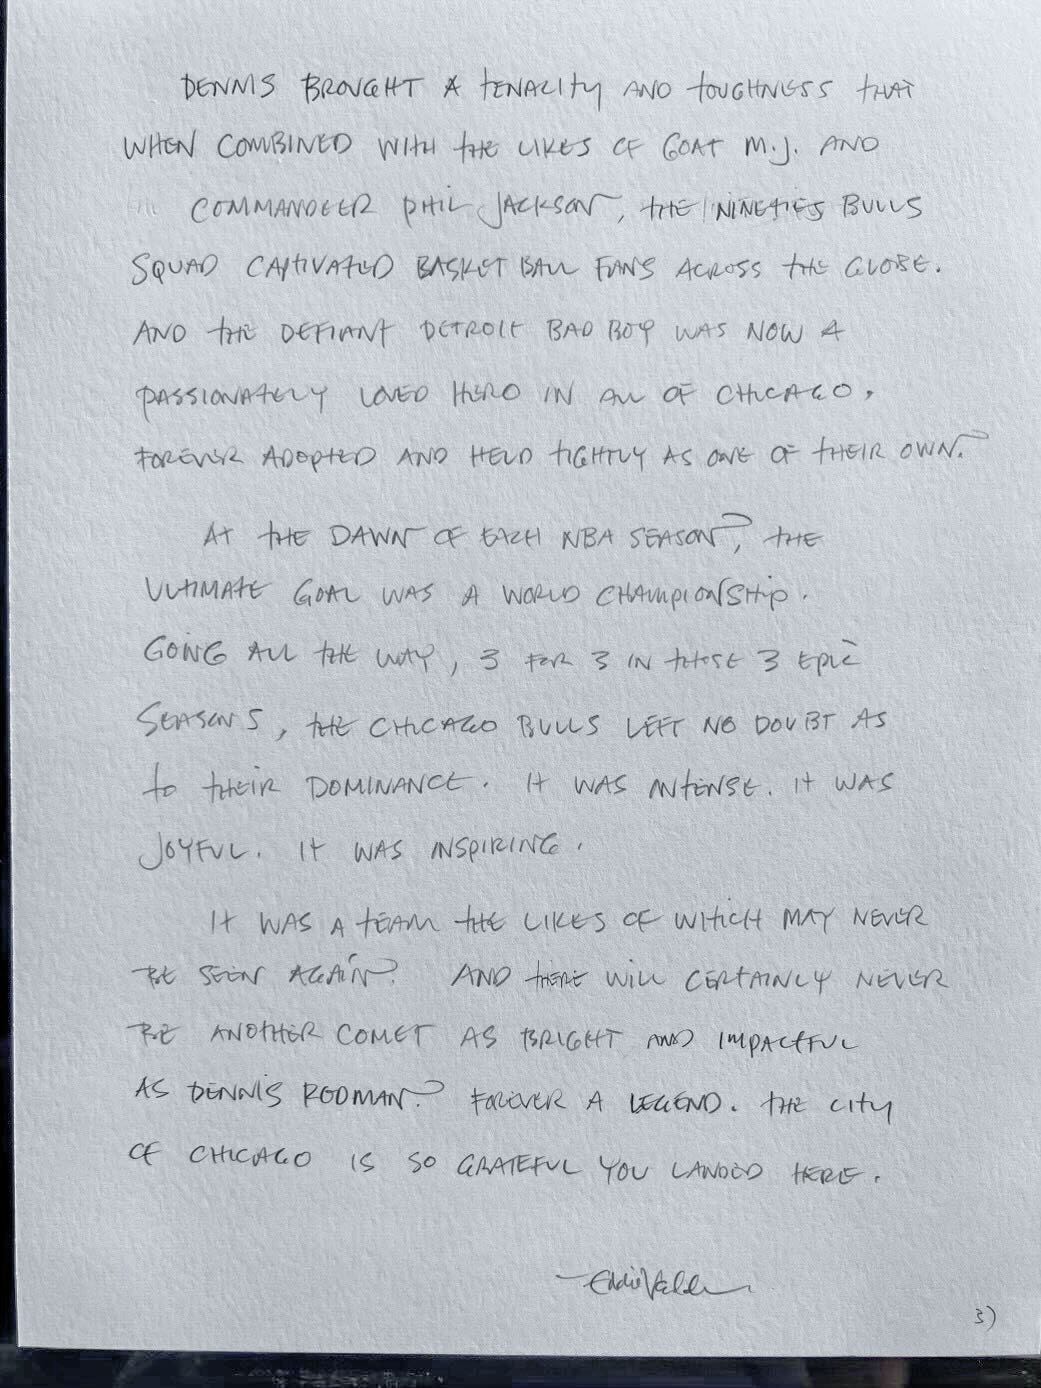 DENNIS BROUGHT A TENACITY AND TOUGHNESS THAT
WHEN COMBINED WITH THE LIKES OF GOAT M.J. AND
COMMANDEER PHIL JACKSON, THE NINETIES BULLS
SQUAD CAPTIVATED BASKETBALL FANS ACROSS THE GLOBE.
AND THE DEFIANT DETROIT BAD BOY WAS NOW A
PASSIONATELY LOVED HERO IN ALL OF CHICAGO.
FOREVER ADOPTED AND HELD TIGHTLY AS ONE OF THEIR OWN.
AT THE DAWN OF EACH NBA SEASON, THE
ULTIMATE GOAL WAS A WORLD CHAMPIONSHIP.
GOING ALL THE WAY, 3 FOR 3 IN THOSE 3 EPIC
SEASONS, THE CHICAGO BULLS LEFT NO DOUBT AS
TO THEIR DOMINANCE. IT WAS INTENSE. IT WAS
JOYFUL. IT WAS INSPIRING.
IT WAS A TEAM THE LIKES OF WHICH MAY NEVER
BE SEEN AGAIN. AND THERE WILL CERTAINLY NEVER
BE ANOTHER COMET AS BRIGHT AND IMPACTFUL
AS DENNIS RODMAN. FOREVER A LEGEND. THE CITY
OF CHICAGO IS SO GRATEFUL YOU LANDED HERE.
Eddie Vedder
3)